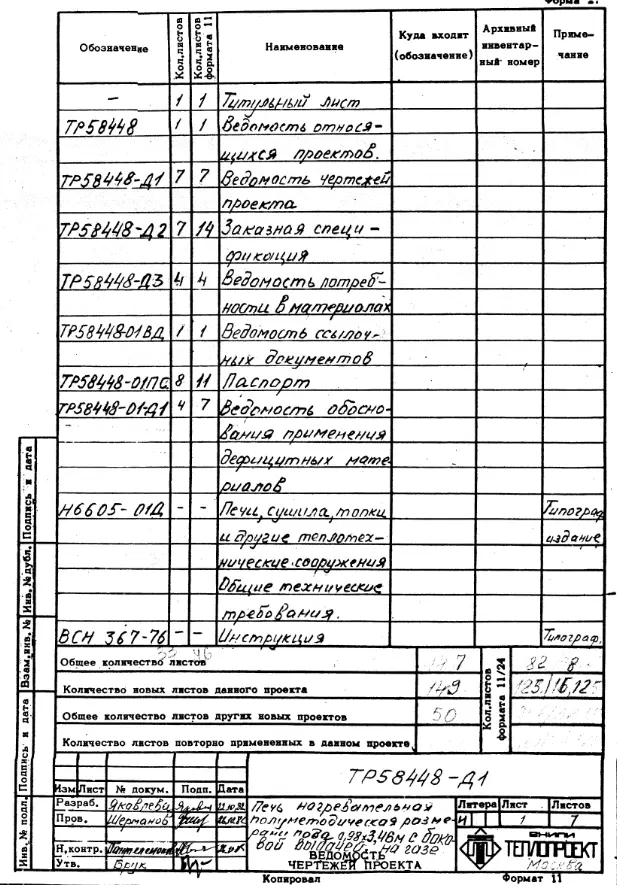 Форма 1.
Обозначение Кол.листов Кол.листов формата 11 Наименование Куда входит (обозначение) Архивный инвентарный номер Примечание
— 1 1 Титульный лист
ТР58448 1 1 Ведомость относя-
щихся проектов.
ТР58448-Д1 7 7 Ведомость чертежей
проекта
ТР58448-Д2 7 14 Заказная специ-
фикация
ТР58448-Д3 4 4 Ведомость потреб-
ности в материалах
ТР58448-01ВД 1 1 Ведомость ссылоч-
ных документов
ТР58448-01ПС 8 11 Паспорт
ТР58448-01-Д1 4 7 Ведомость обосно-
вания применения
дефицитных мате
риалов
Н6605-01Д - - Печи, сушила, топки Типограф.
и другие теплотех- издание
нические сооружения
Общие технические
требования.
ВСН 367-76 - - Инструкция Типограф.
Общее количество листов
Количество новых листов данного проекта 149
Общее количество листов других новых проектов 50
Количество листов повторно примененных в данном проекте
Кол.листов формата 11/24
Подпись и дата
Инв.№дубл.
Взам.инв.№
Подпись и дата
Инв.№ подл.
ТР58448-Д1
Изм Лист № докум. Подп. Дата
Разраб. Яковлева
Пров. Шерманов
Н.контр.
Утв. Брук
Печь нагревательная
полуметодическая разме-
рами пода 0,98х3,48м с боко-
вой выдачей, на газе
ВЕДОМОСТЬ
ЧЕРТЕЖЕЙ ПРОЕКТА
Литера Лист Листов
И 1 7
ВНИПИ
ТЕПЛОПРОЕКТ
Москва
Копировал Формат 11